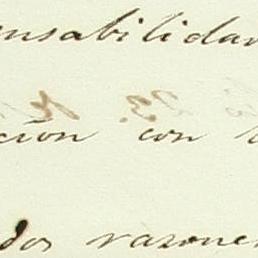 ensabilidad
ción con
dos razones